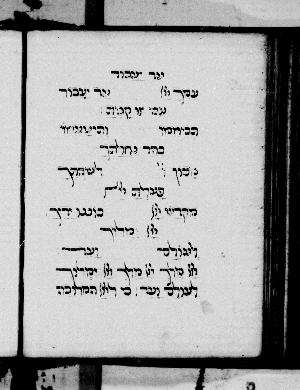 עד יעבור
עמך יי עד יעבור
עם זו קנית
תביאמו ותטעמו
בהר נחלתך
מכון לשבתך
פעלת יי
מקדש יי כוננו ידיך
יי ימלוך
לעולם ועד
יי מלך יי מלך יי ימלוך
לעולם ועד כי ליי המלוכה